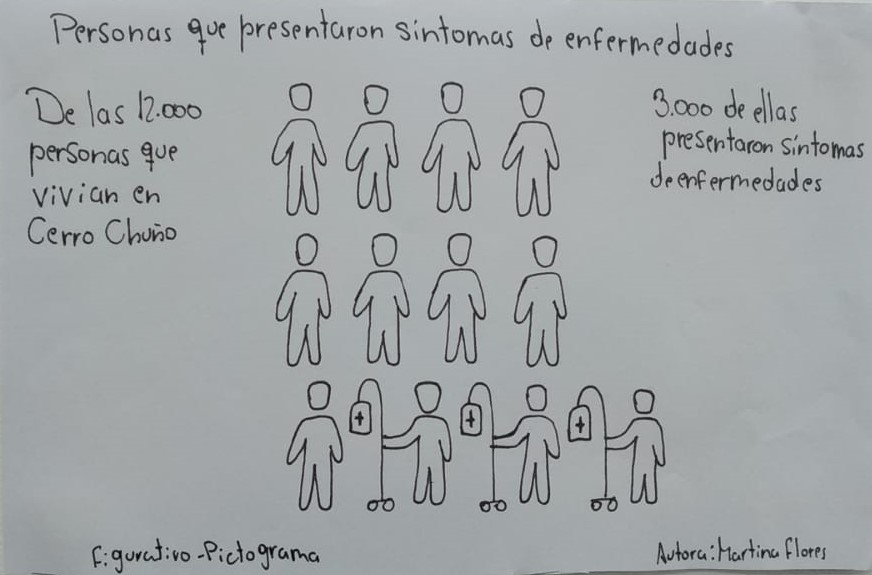 Personas que presentaron sintomas de enfermedades
De las 12.000
personas que
vivian en
Cerro Chuño
3.000 de ellas
presentaron síntomas
de enfermedades
Figurativo-Pictograma
Autora: Martina Flores